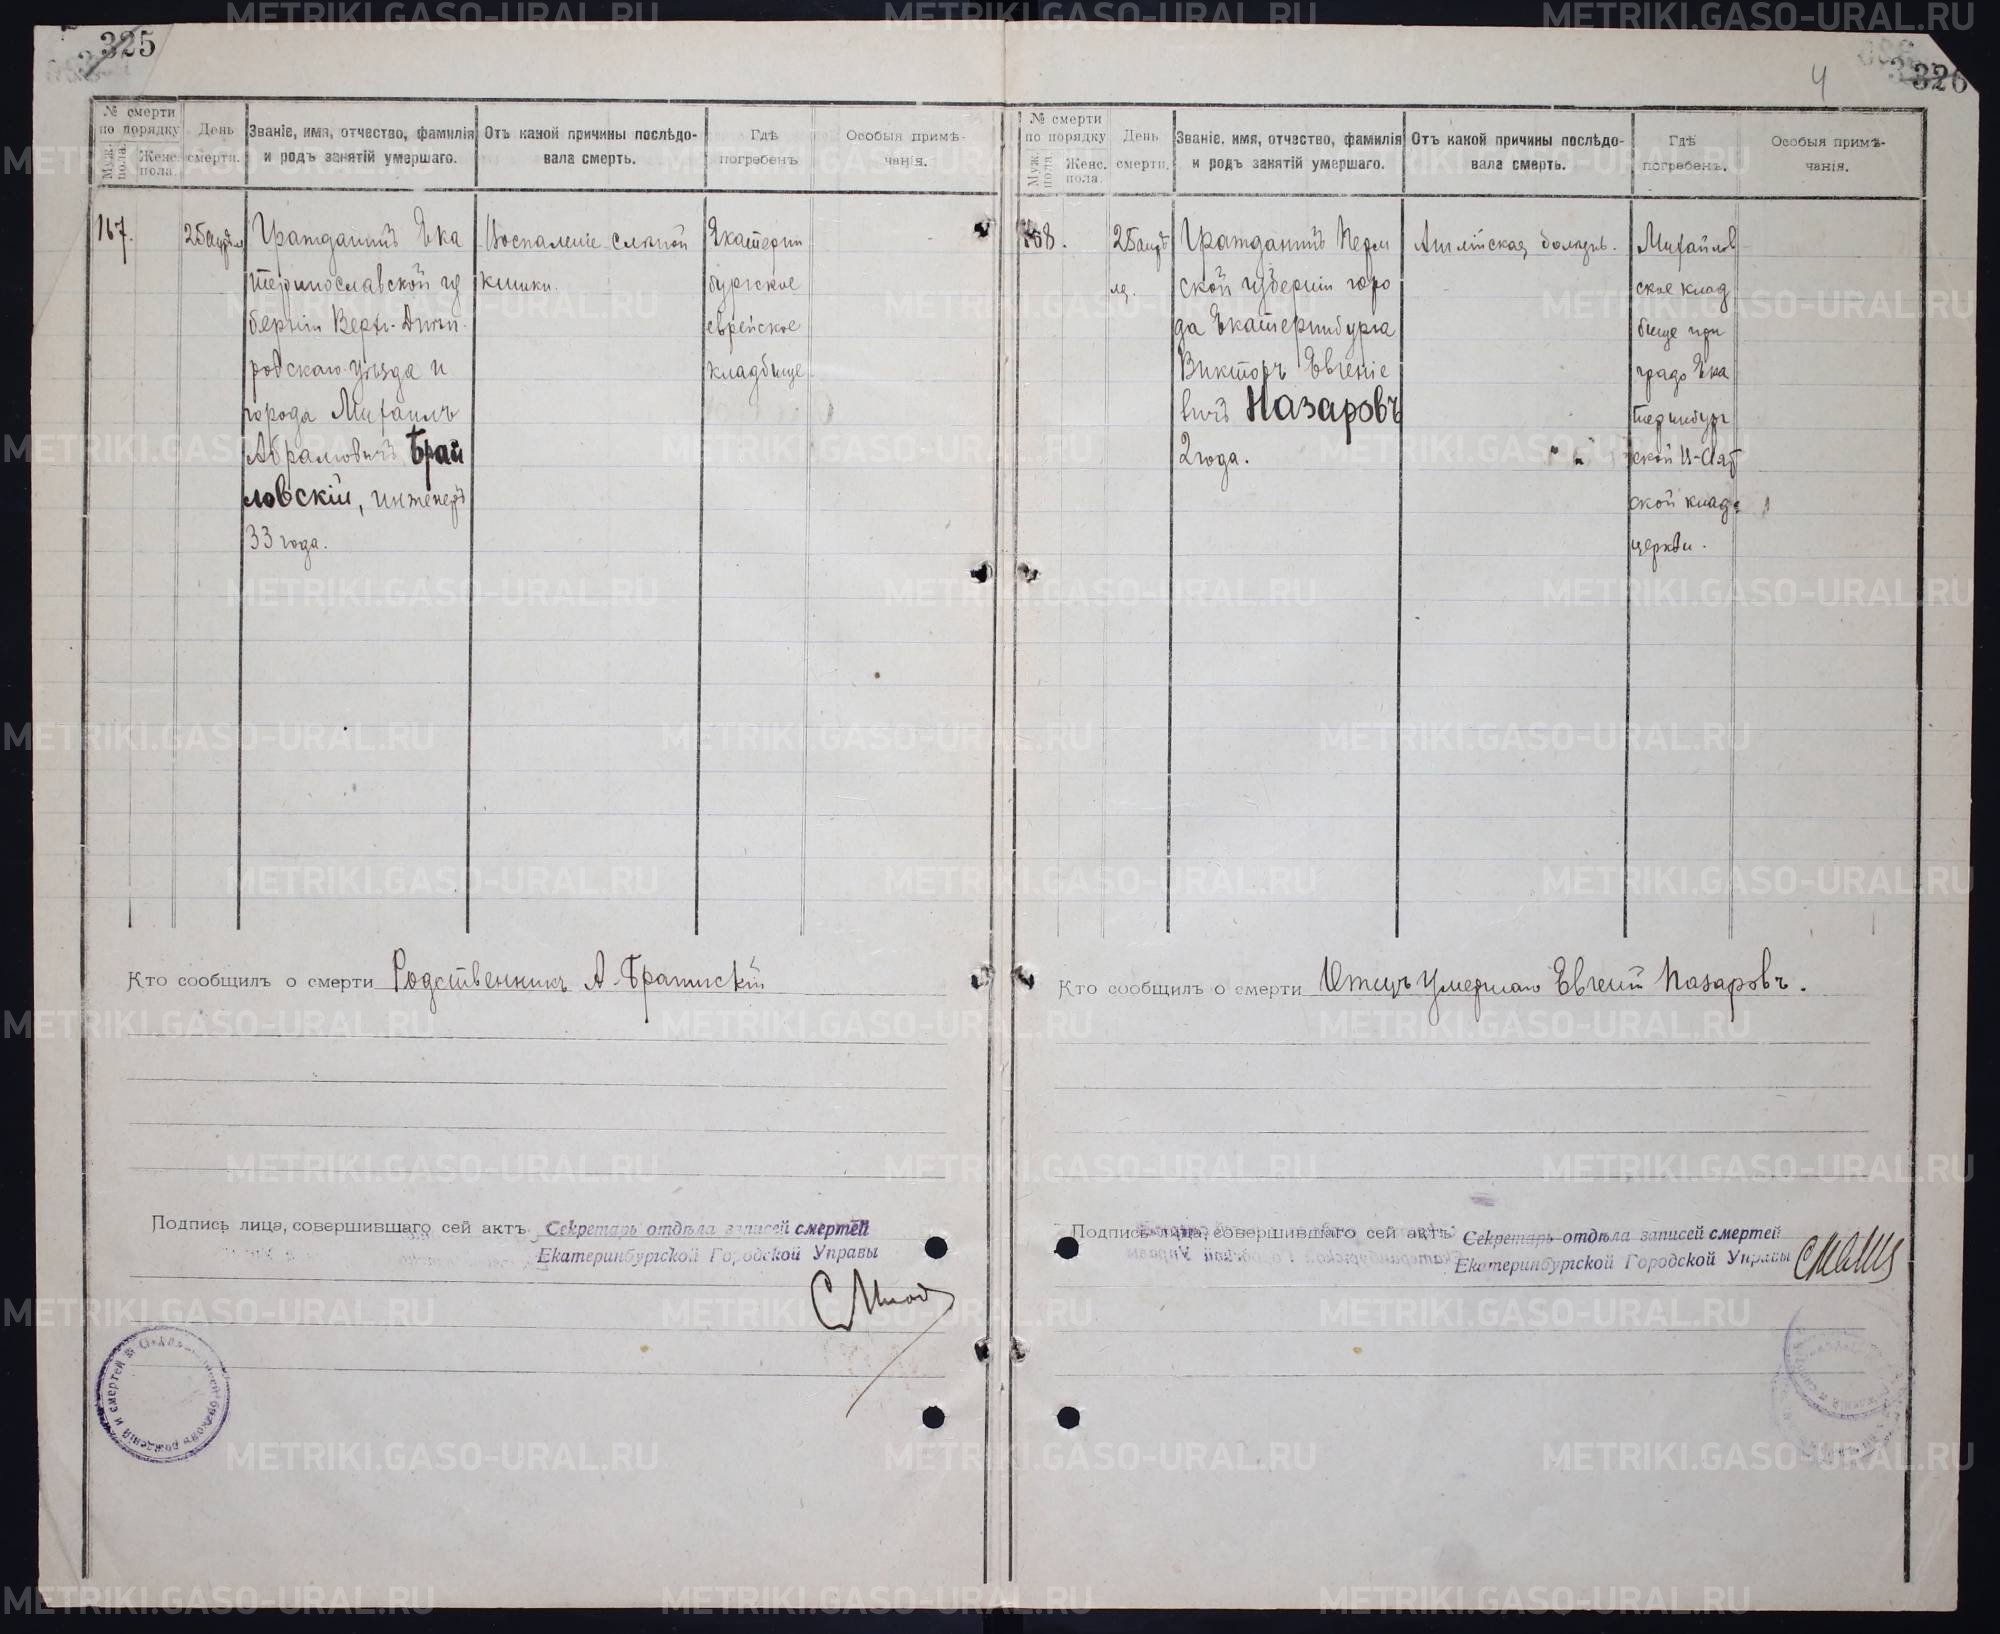 325
№ смерти
по порядку
Муж. пола.
Женс. пола.
День
смерти.
Званіе, имя, отчество, фамилія
и родъ занятій умершаго.
Отъ какой причины послѣдо-
вала смерть.
Гдѣ
погребенъ
Особыя примѣ-
чанія.
167.
25 апрѣля
Гражданинъ Ека
теринославской гу
берніи Верхн-Днѣп
ровскаго уѣзда и
города Михаилъ
Абрамовичъ Брай
ловскій, инженеръ
33 года.
Воспаленіе слѣпой
кишки.
Екатерин
бургское
еврейское
кладбище
Кто сообщилъ о смерти Родственникъ А.
Подпись лица, совершившаго сей актъ Секретарь отдѣла записей смертей
Екатеринбургской Городской Управы
326
4
№ смерти
по порядку
Муж. пола.
Женс. пола.
День
смерти.
Званіе, имя, отчество, фамилія
и родъ занятій умершаго.
Отъ какой причины послѣдо-
вала смерть.
Гдѣ
погребенъ.
Особыя примѣ-
чанія.
168.
25 апрѣ
ля.
Гражданинъ Перм
ской губерніи горо
да Екатеринбурга
Викторъ Евгеніе
вичъ Назаровъ
2 года.
Англійская болѣзнь.
Михайлов
ское клад
бище при
градо Ека
теринбург
ской
ской клад.
церкви.
Кто сообщилъ о смерти Отецъ умершаго Евгеній Назаровъ.
Подпись лица, совершившаго сей актъ Секретарь отдѣла записей смертей
Екатеринбургской Городской Управы
METRIKI.GASO-URAL.RU